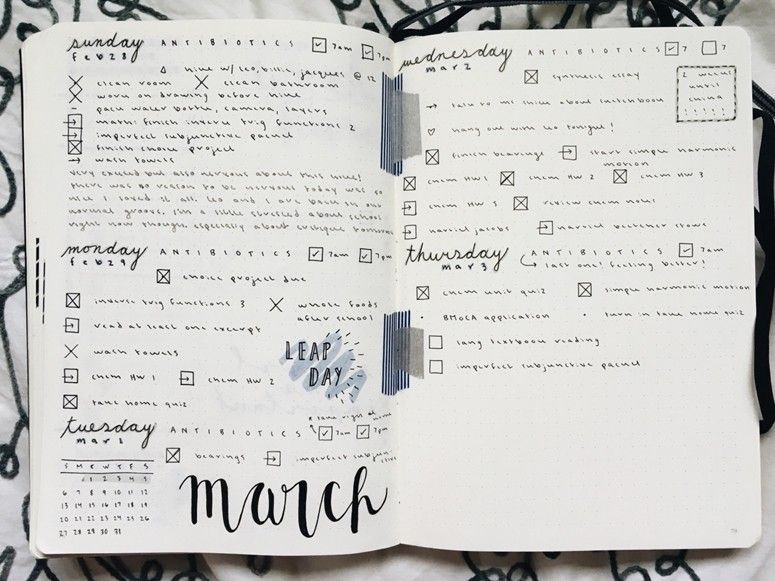 sunday ANTIBIOTICS 7am 7pm
feb 28
hike w/ leo, billie, jacques @ 12
clean room clean bathroom
work on drawing before hike
pack water bottle, camera, layers
math: finish inverse trig functions 2
imperfect subjunctive packet
finish choice project
wash towels
very excited but also nervous about this hike!
there was no reason to be nervous today was so
nice I loved it all. leo and I are back in our
normal groove. I'm a little stressed about school
right now though. especially about critique tomorrow
monday ANTIBIOTICS 7am 7pm
feb 29
choice project due
inverse trig functions 3 whole foods
after school
read at least one excerpt
LEAP
DAY
wash towels
chem HW 1 chem HW 2
take home quiz
tuesday ANTIBIOTICS 7am 7pm
mar 1
* take right at home
bearings imperfect subjunctive
S M T W T F S
1 2 3 4 5
6 7 8 9 10 11 12
13 14 15 16 17 18 19
20 21 22 23 24 25 26
27 28 29 30 31
march
wednesday ANTIBIOTICS 7 7
mar 2
synthesis essay
2 weeks
until
china
! ! ! ! !
talk to ms about sketchbook
hang out with leo tonight!
finish bearings start simple harmonic
motion
chem HW 1 chem HW 2 chem HW 3
chem HW 5 review chem notes
harriet jacobs harriet beecher stowe
thursday ANTIBIOTICS 7am
mar 3
last one! feeling better!
chem unit quiz simple harmonic motion
BMoCA application turn in take home quiz
lang textbook reading
imperfect subjunctive packet